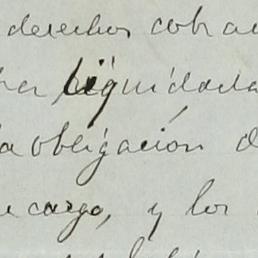 derechos cobra
liquidada
la obligación d
cargo, y los